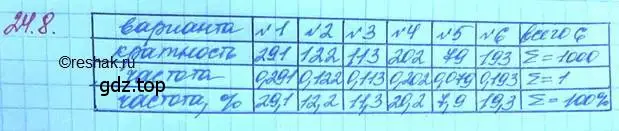 24.8.
варианта №1 №2 №3 №4 №5 №6 всего 6
кратность 291 122 113 202 79 193 Σ=1000
частота 0,291 0,122 0,113 0,202 0,079 0,193 Σ=1
частота, % 29,1 12,2 11,3 20,2 7,9 19,3 Σ=100%
©reshak.ru
gdz.top